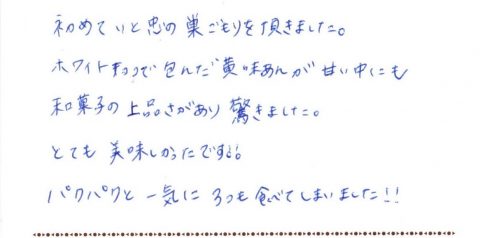 初めていと忠の巣ごもりを頂きました。
ホワイトチョコで包んだ黄味あんが甘い中にも
和菓子の上品さがあり驚きました。
とても美味しかったです!。
パクパクと一気に3つも食べてしまいました!!